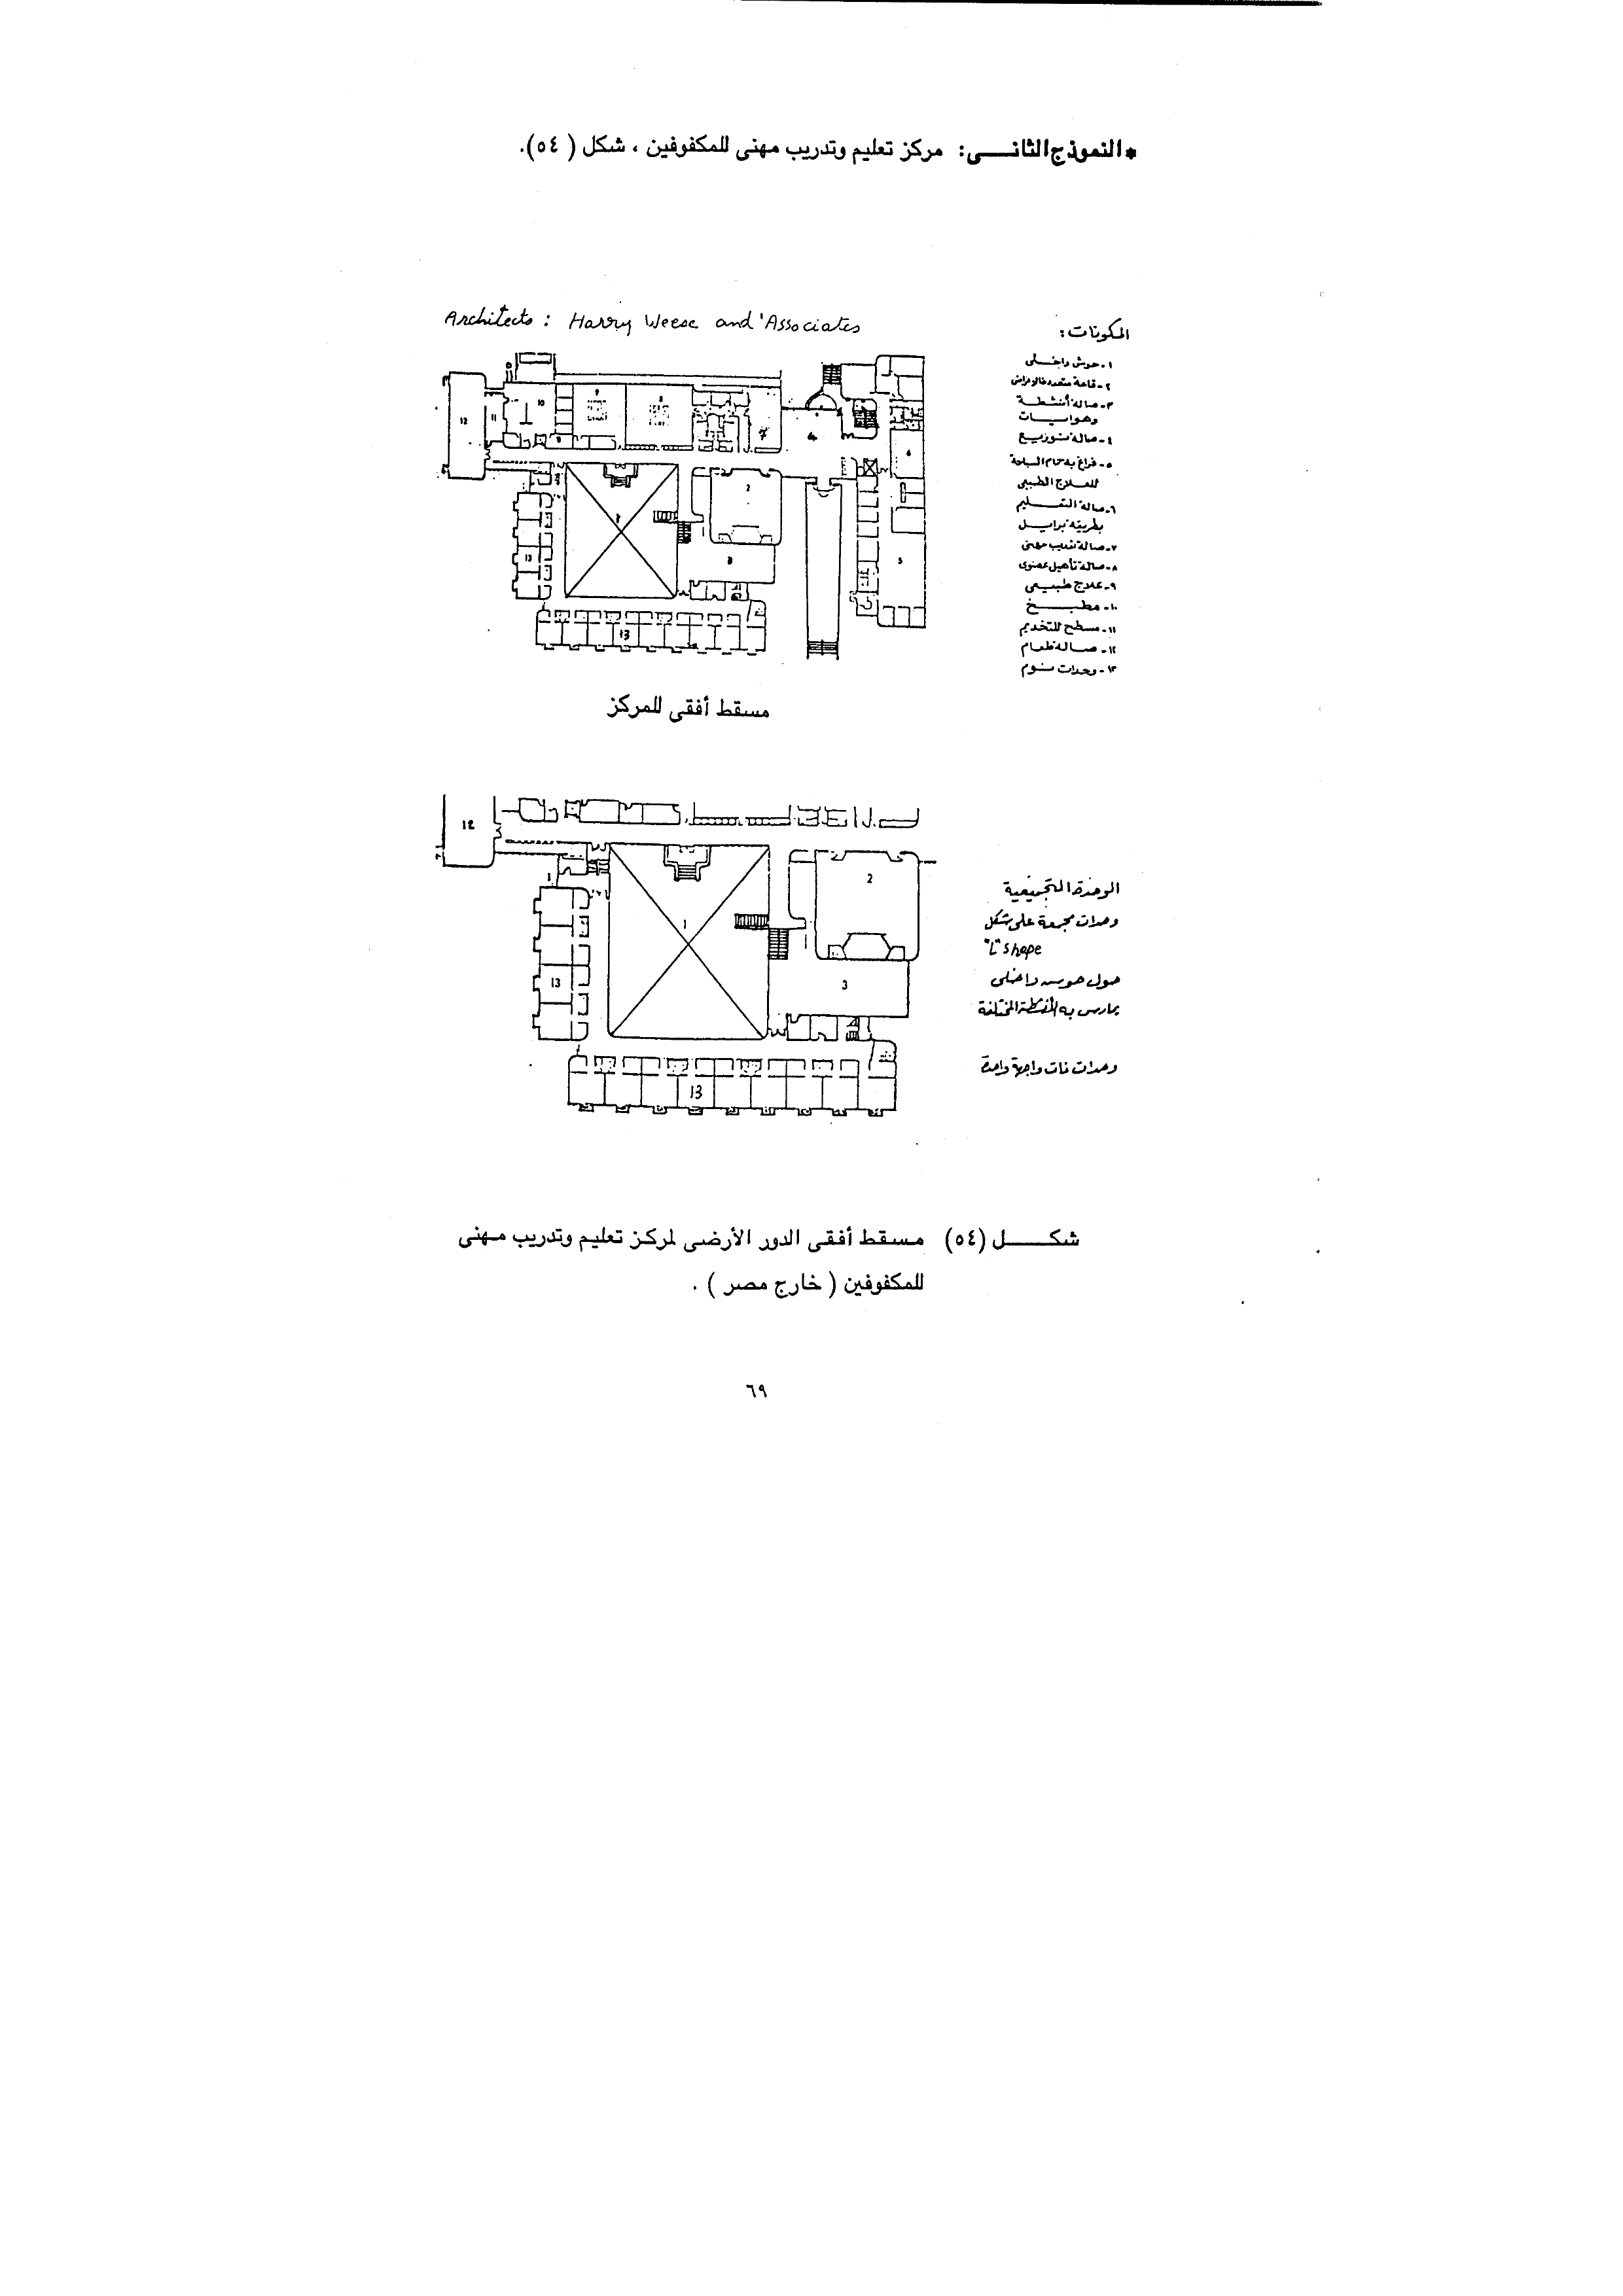 * النموذج الثانـــى: مركز تعليم وتدريب مهنى للمكفوفين ، شكل ( ٥٤).
Architects : Harry Weese and Associates
المكونات :
١- حوش داخلى
٢- قاعة متعددة الاغراض
٣- صالة أنشطة
وهوايات
٤- صالة توزيع
٥- فراغ به حمام السباحة
للعلاج الطبيعى
٦- صالة التعليم
بطريقة برايل
٧- صالة تدريب مهنى
٨- صالة تأهيل عضوى
٩- علاج طبيعى
١٠- مطبخ
١١- مسطح للتخديم
١٢- صالة طعام
١٣- وحدات نوم
12
11
10
9
8
7
4
6
1
2
3
5
13
13
مسقط أفقى للمركز
12
1
2
3
13
13
الوحدة التجميعية
وحدات مجمعة على شكل
"L" shape
حول حوش داخلى
يمارس به الأنشطة المختلفة
وحدات ذات واجهة واحدة
شكـــــل (٥٤) مسقط أفقى الدور الأرضى لمركز تعليم وتدريب مهنى
للمكفوفين ( خارج مصر ) .
٦٩